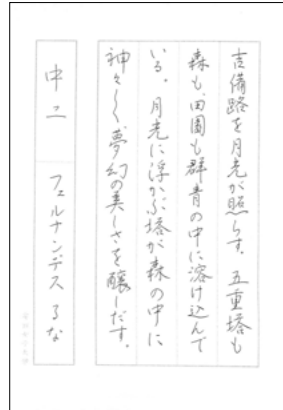 吉備路を月光が照らす。五重塔も
森も、田園も群青の中に溶け込んで
いる。月光に浮かぶ塔が森の中に
神々しく夢幻の美しさを醸しだす。
中二 フェルナンデス るな